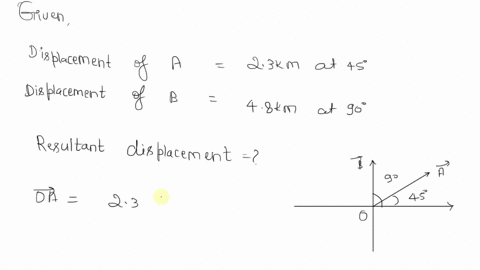 Given,
Displacement of A = 2.3km at 45°
Displacement of B = 4.8km at 90°
Resultant displacement = ?
OA = 2.3
90°
A
45°
O